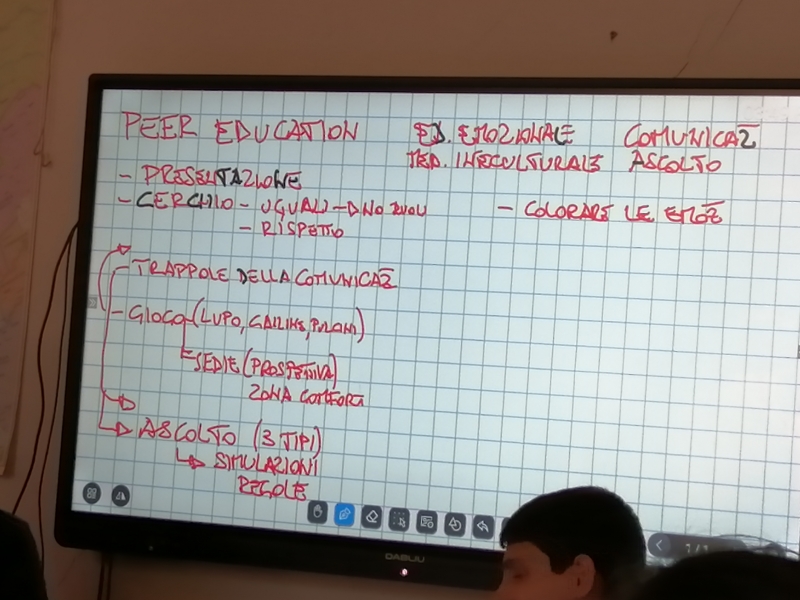 PEER EDUCATION
ED. EMOZIONALE COMUNICAZ
MED. INTECULTURALE ASCOLTO
- PRESENTAZIONE
- CERCHIO - UGUALI - NO
- RISPETTO
- COLORARE LE EMOZ
- TRAPPOLE DELLA COMUNICAZ
- GIOCO (LUPO, GALLINE, PULCINI)
SEDIE (PROSPETTIVA)
ZONA COMFORT
ASCOLTO (3 TIPI)
SIMULAZIONI
REGOLE
1/1